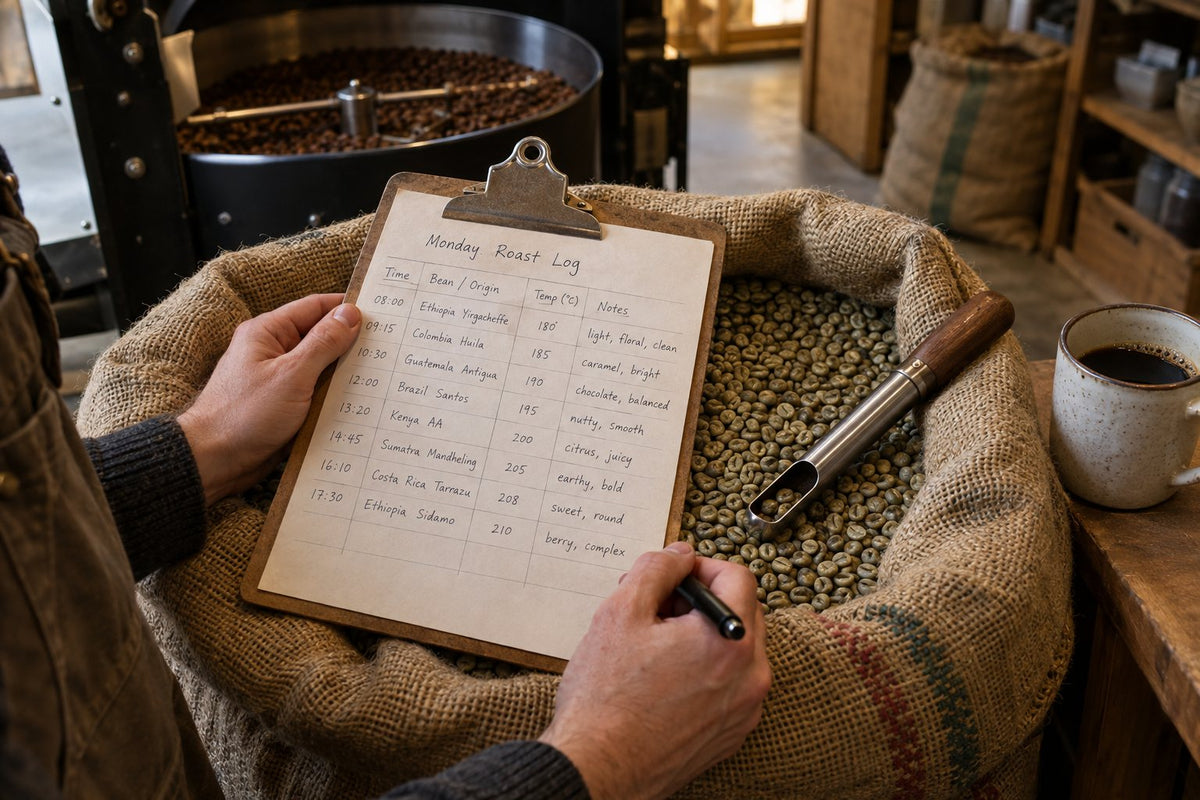 Monday Roast Log
Time Bean / Origin Temp (°C) Notes
08:00 Ethiopia Yirgacheffe 180° light, floral, clean
09:15 Colombia Huila 185 caramel, bright
10:30 Guatemala Antigua 190 chocolate, balanced
12:00 Brazil Santos 195 nutty, smooth
13:20 Kenya AA 200 citrus, juicy
14:45 Sumatra Mandheling 205 earthy, bold
16:10 Costa Rica Tarrazu 208 sweet, round
17:30 Ethiopia Sidamo 210 berry, complex